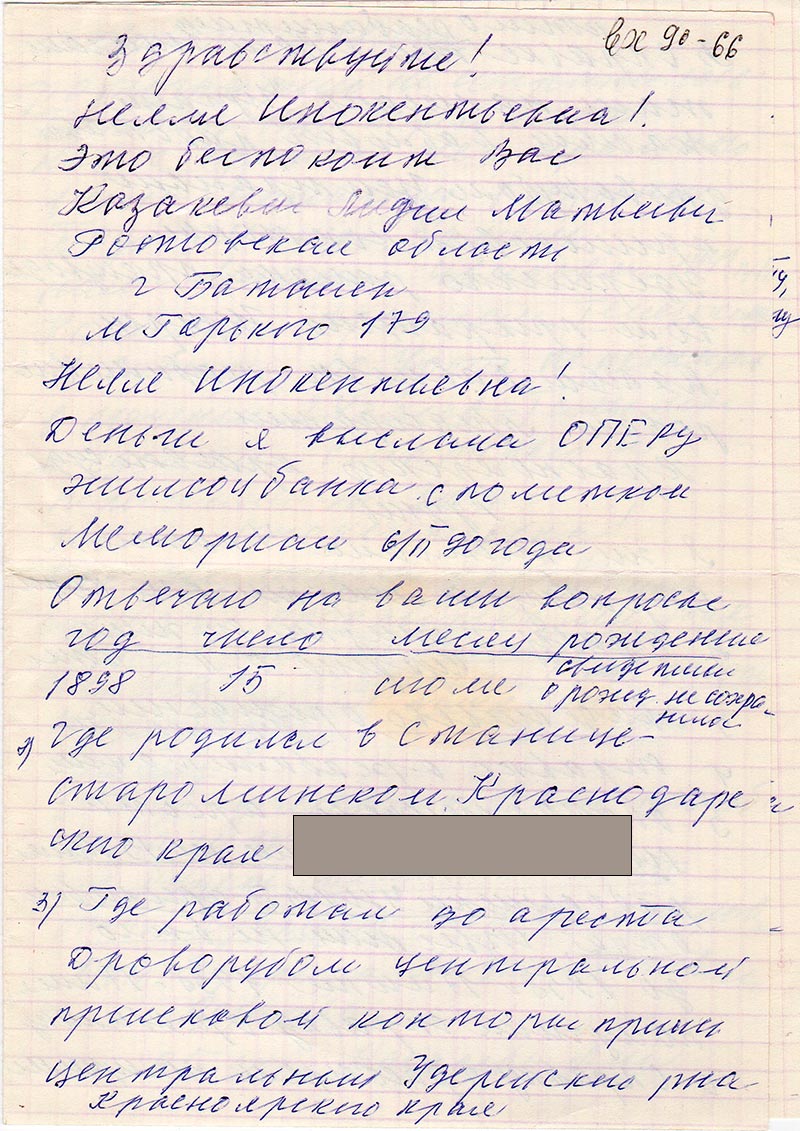 вх 90-66
Здравствуйте!
Нелля Инокентьевна!
Это беспокоит Вас
Казакева Лидия Матвеевн
Ростовская область
г Батайск
М Горького 179
Нелля Инокентиевна!
Деньги я выслала ОПЕРУ
жилсоцбанка с пометкой
Мемориал 6/II 90 года
Отвечаю на ваши вопросы
год число месец рождения
1898 15 июля
свидетели
о рожд. не сохра-
нила
2) Где родился в Станице-
староминской Краснодарс
ского края
3) Где работал до ареста
Дроворубом центральной
приисковой конторы приис
центральный Удерейского р-на
Красноярского края